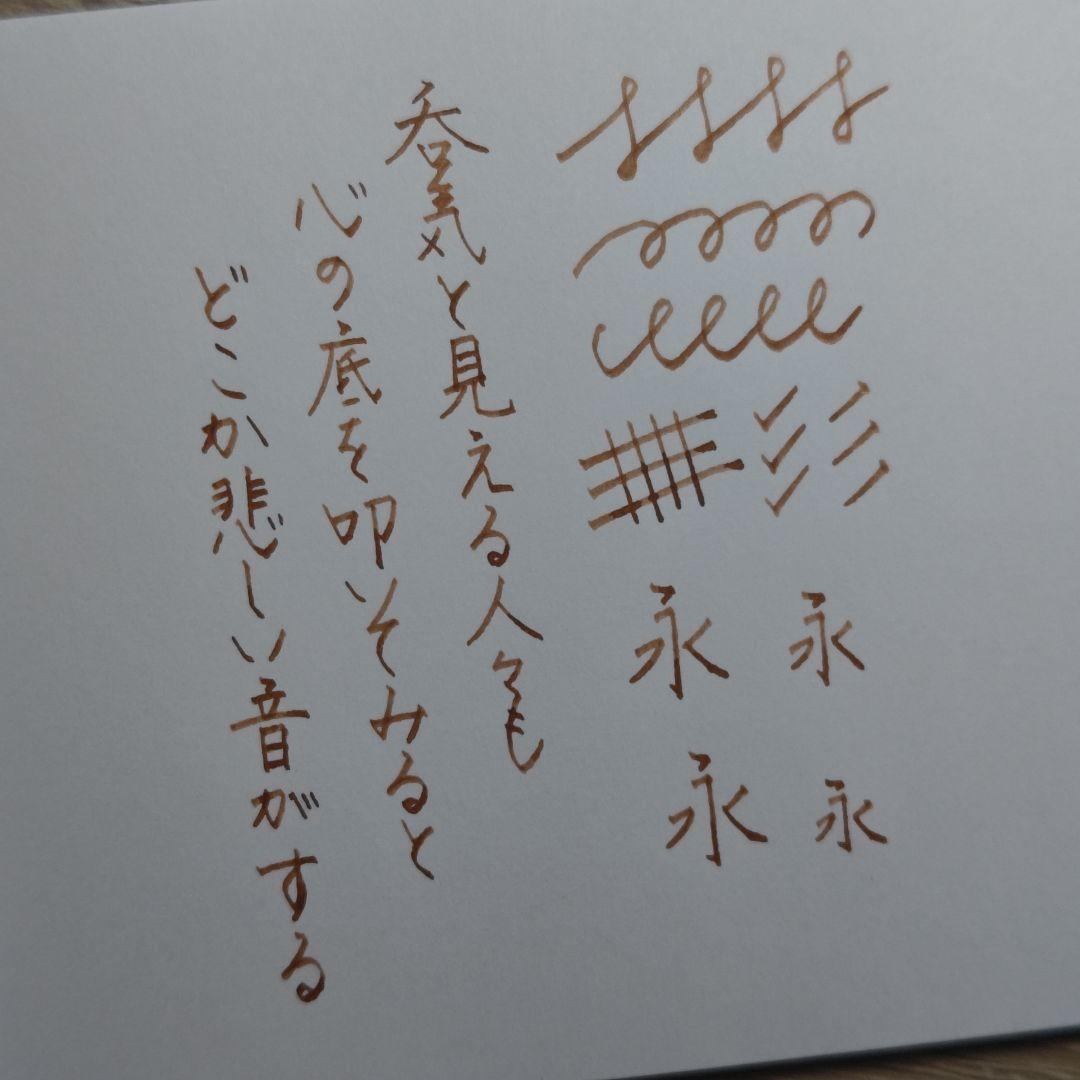 永 永
永 永
呑気と見える人々も
心の底を叩いてみると
どこか悲しい音がする